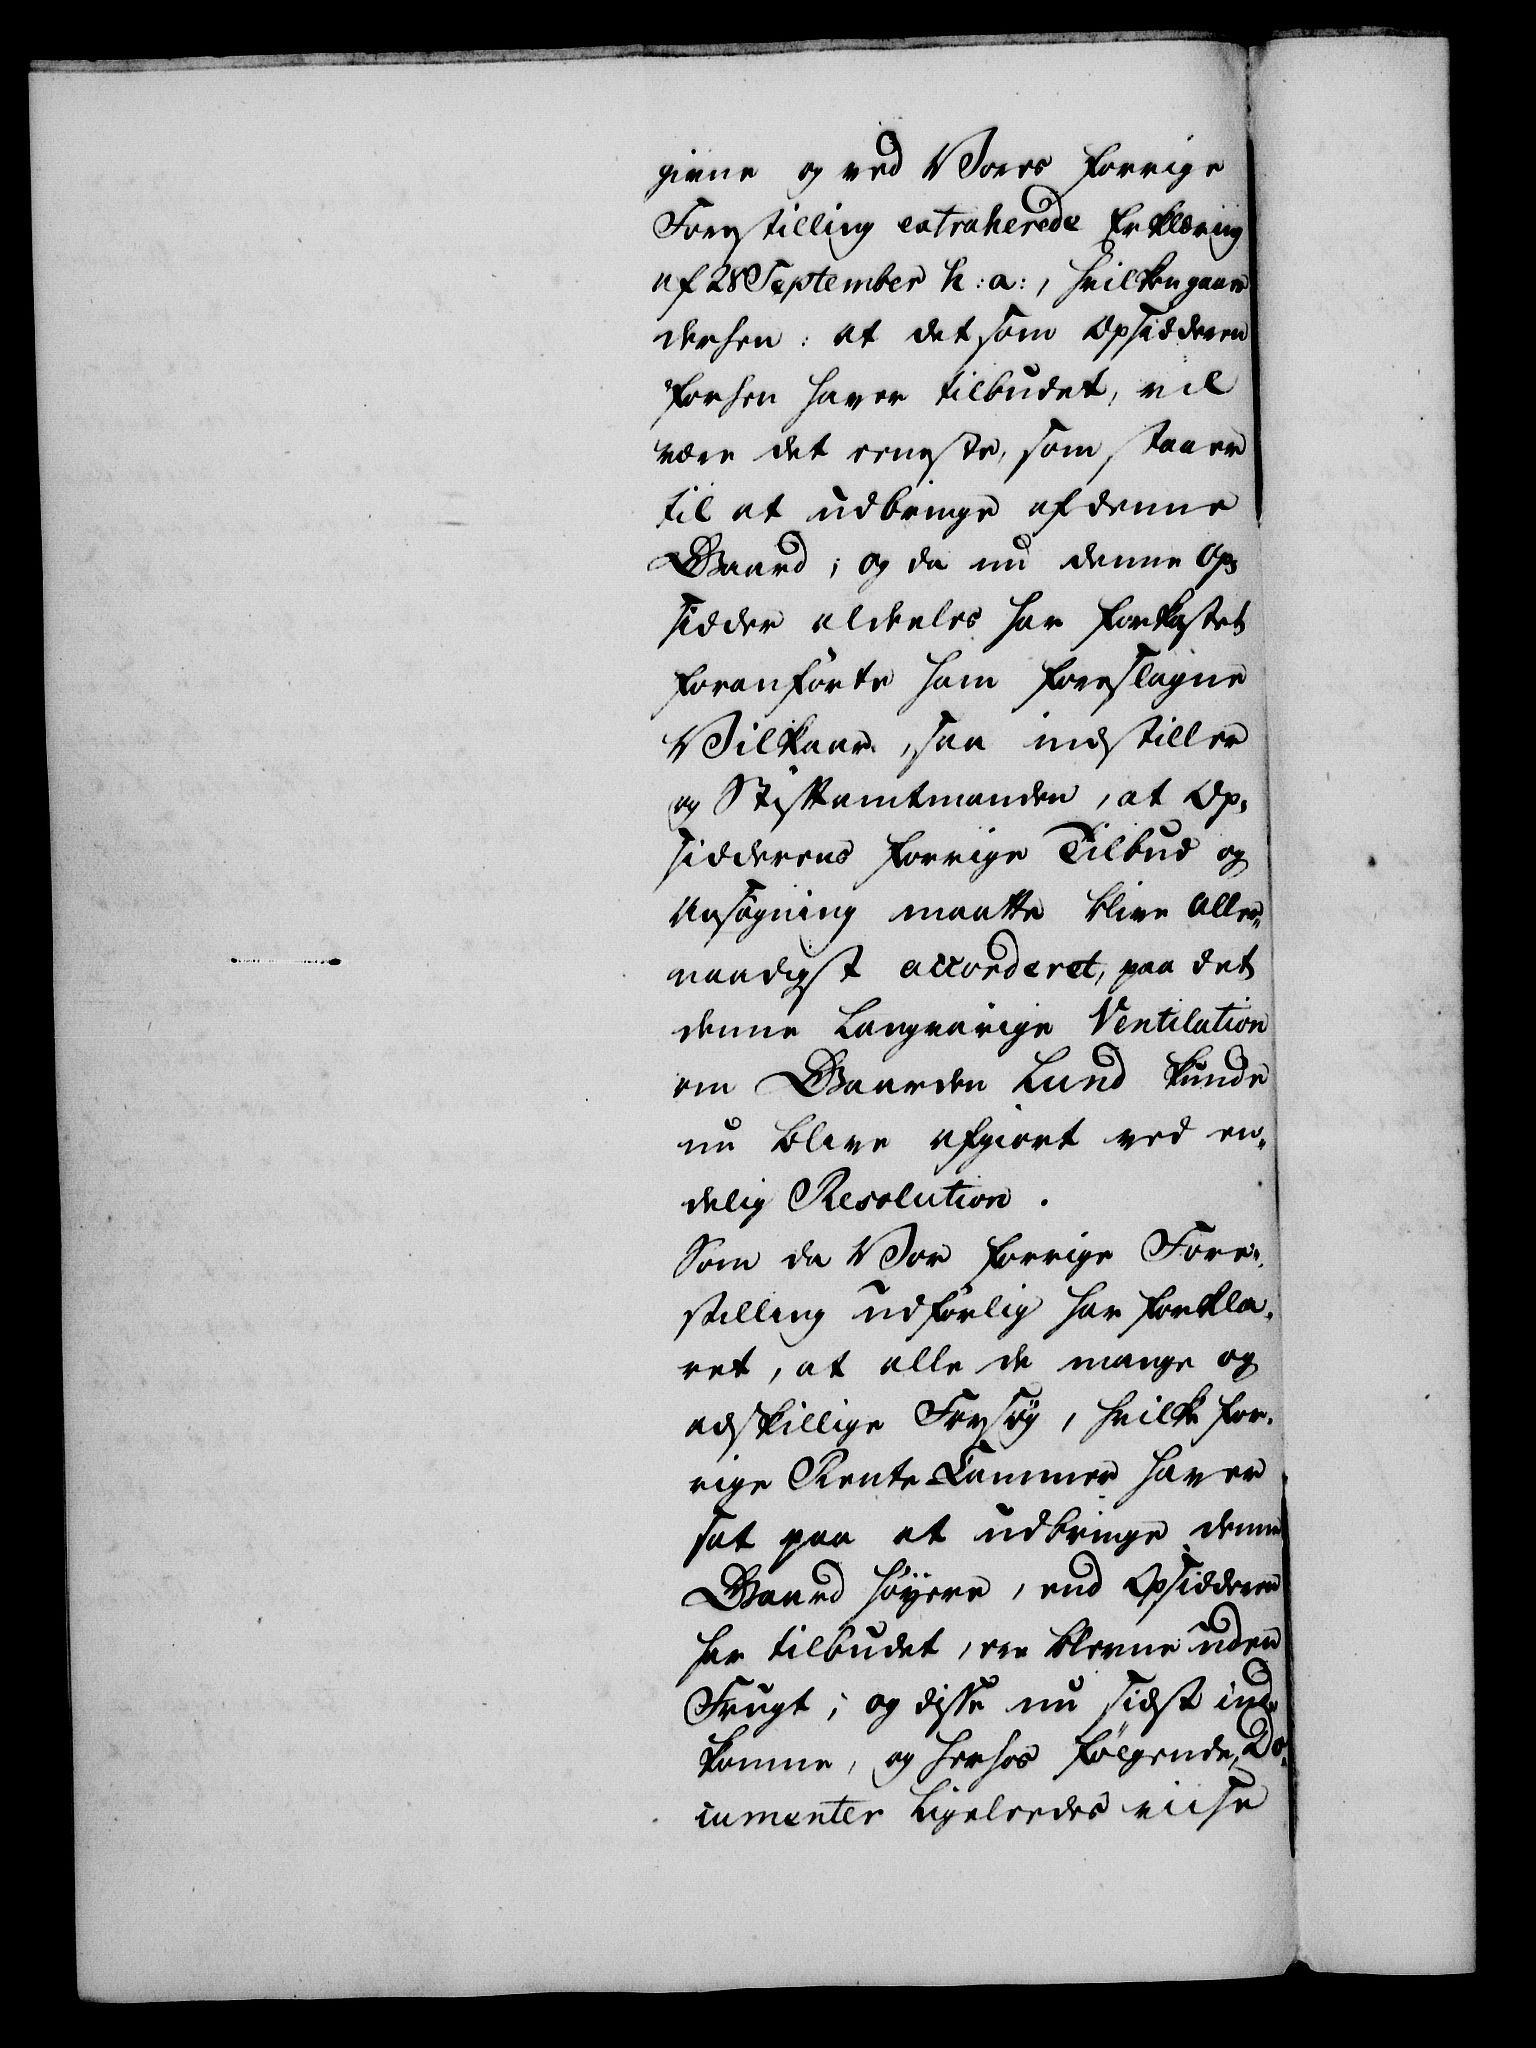 givne og ved Vores forrige
Forestilling extraherede Erklæring
af 28 September h: a:, hvilken gaaer
derhen: at det som Opsidderen
forhen haver tilbudet, vil
være det eeneste, som staaer
til at udbringe af denne
Gaard; og da nu denne Op-
sidder aldeeles har forkastet
foranførte ham foreslagne
Vilkaar, saa indstiller
og Stiftamtmanden, at Op-
sidderens forrige Tilbud og
Ansøgning maatte blive Aller-
naadigst accorderet, paa det
denne langvarige Ventilation
om Gaarden Lund kunde
nu blive afgiort ved en-
delig Resolution.
Som da Vor forrige Fore-
stilling udførlig har forkla-
ret, at alle de mange og
adskillige Forsøg, hvilke for-
rige Rente Cammer haver
sat paa at udbringe denne
Gaard høyere, end Opsidderen
har tilbudet, ere blevne uden
Frugt; og disse nu sidst ind-
komne, og herhos følgende Do-
cumenter ligeleedes viise